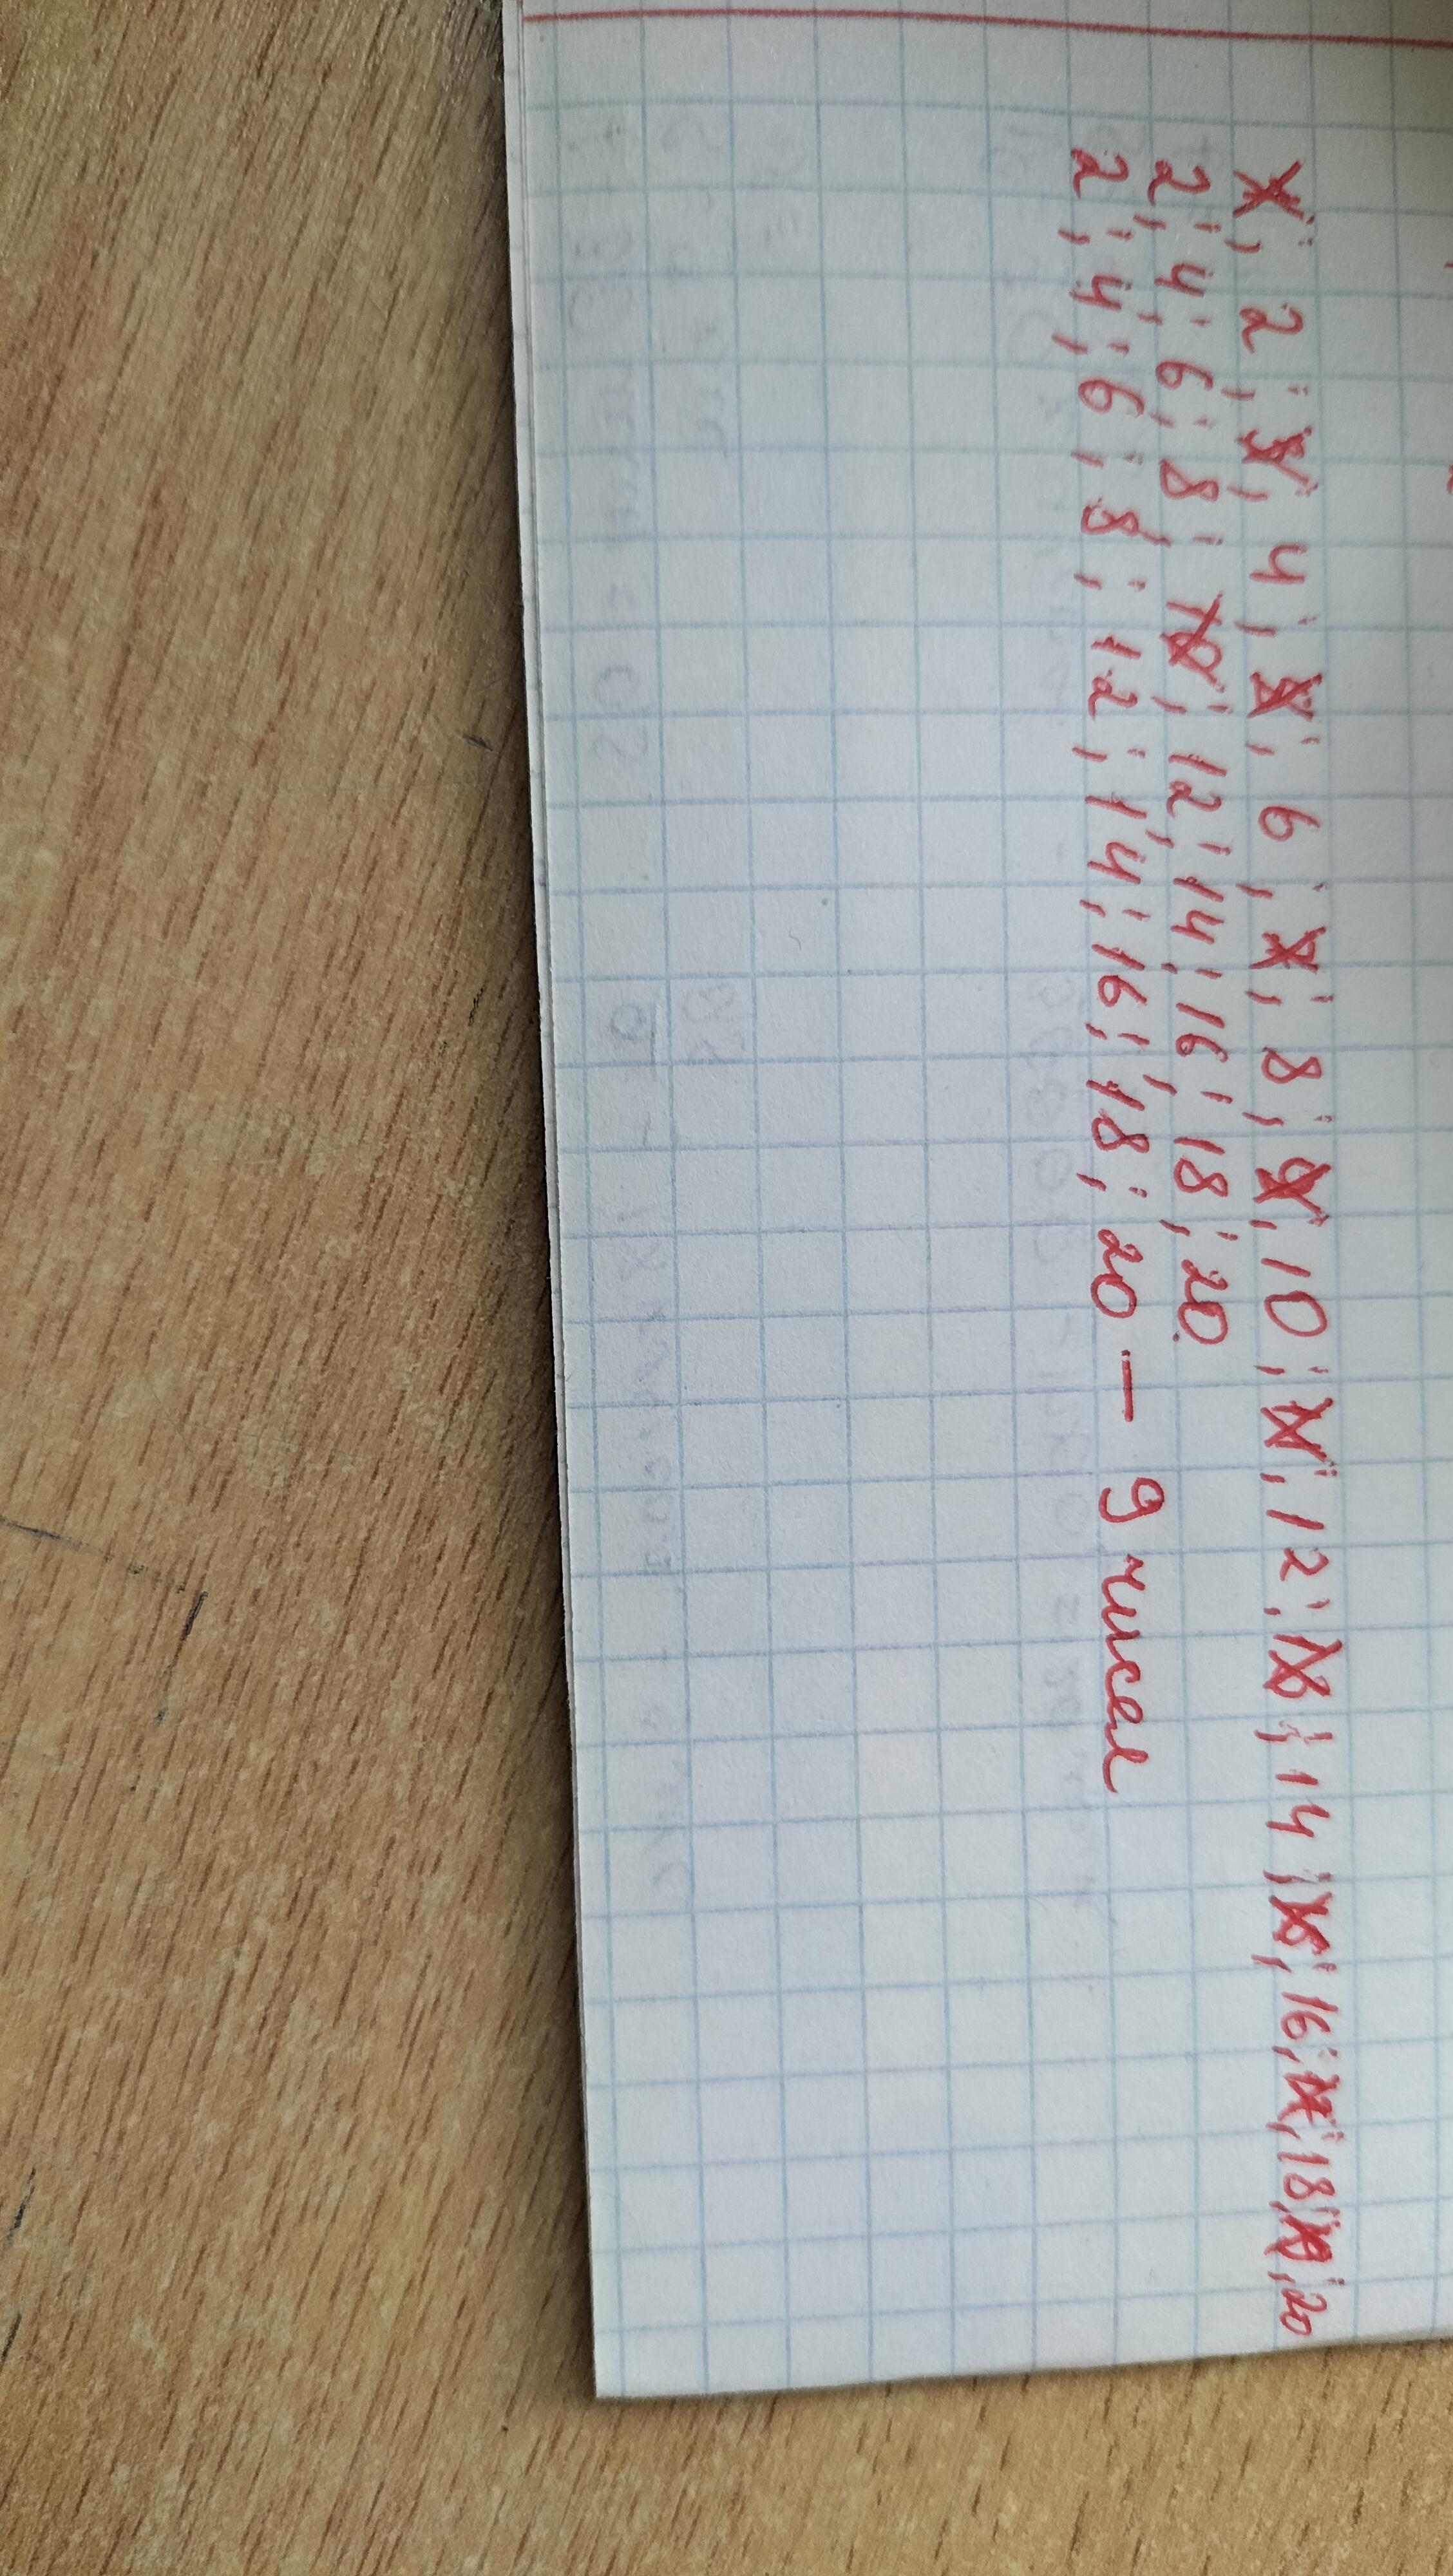 1; 2; 3; 4; 5; 6; 7; 8; 9; 10; 11; 12; 13; 14; 15; 16; 17; 18; 19; 20
2; 4; 6; 8; 10; 12; 14; 16; 18; 20.
2; 4; 6; 8; 12; 14; 16; 18; 20 — 9 чисел